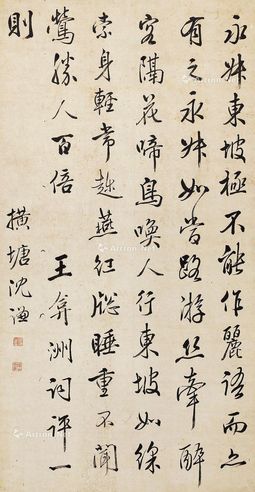 永叔東坡極不能作麗語而亦
有之永叔如當路游絲牽醉
客隔花啼鳥喚人行東坡如綵
索身輕常趂燕紅牕睡重不聞
鶯勝人百倍 王弇洲詞評一
則
橫塘沈謙